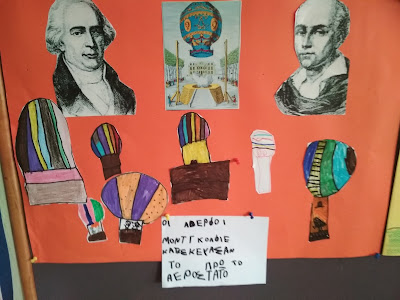 ΟΙ ΑΔΕΡΦΟΙ
ΜΟΝΤΓΚΟΛΦΙΕ
ΚΑΤΕΚΕΥΑΣΑΝ
ΤΟ ΠΡΩΤΟ
ΑΕΡΟΣΤΑΤΟ